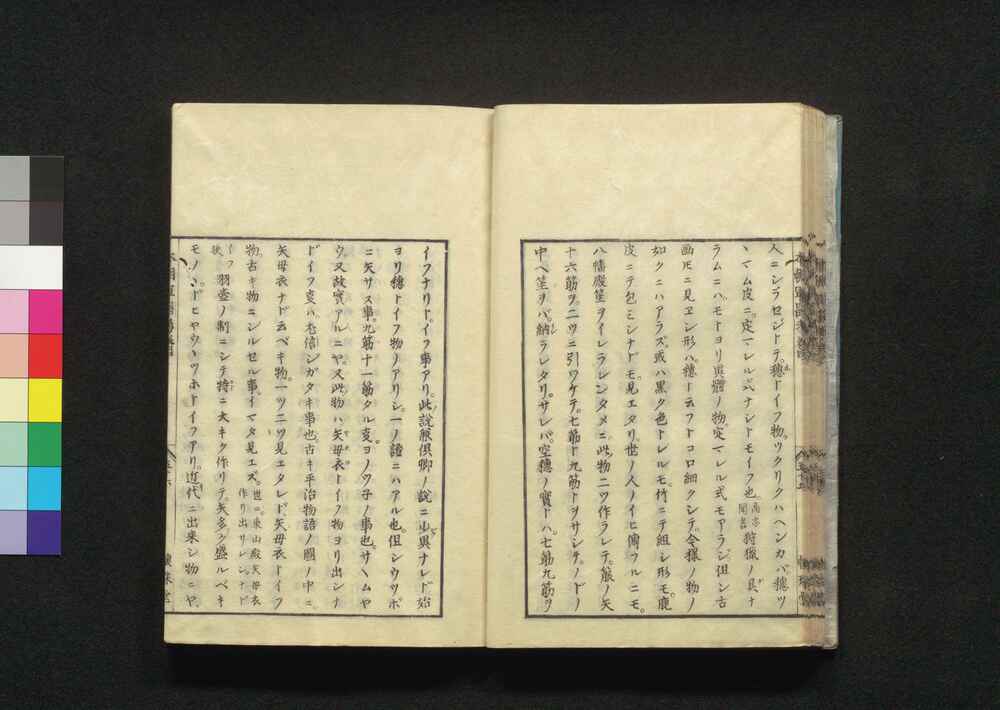 人ニシラロジトテ。穂トイフ物。ツクリクハヘンカバ穂ツ
ヽマム皮ニ。定マレル式ナシトモイフ也 高忠聞書 狩獵ノ具ナ
ラムニハ。モトヨリ異體ノ物。定マレル式モアラジ但シ古
画圧ニ見ヱシ形ハ。穂ト云フトコロ細クシテ。今様ノ物ノ
如クニハアラズ。或ハ黒ク色トレルモ。竹ニテ組シ形モ。鹿
皮ニテ包ミシナドモ。見エタリ世ノ人ノイヒ傳フルニモ。
八幡殿筆ヲイレラレンタメニ此物二ツ作ラレテ。箙ノ矢
十六筋ヲ。二ツニ引ワケテ。七筋ト九筋トヲサシテ。ノドノ
中ヘ筆ヲバ。納ラレタリ。サレバ。空穂ノ實トハ。七筋九筋ヲ
イフナリト。イフ事アリ。此説兼倶卿ノ説ニ少異ナレド始
ヨリ穂トイフ物ノアリシ。一ノ證ニハアル也。但シウツボ
ニ矢サス事。九筋十一筋タル支。ヨノツ子ノ事也。サヘムヤ
ウ。又故實アルニヤ。又此物ハ矢母衣トイフ物ヨリ出シナ
ドイフ支ハ尤信ジガタキ事也。古キ平治物語ノ圖ノ中ニ
矢母衣ナド云ベキ物。一ツ二ツ見エタレド。矢母衣トイフ
物古キ物ニシルセル事。イマダ見エズ。 世ニ。東山殿矢母衣作リ出サレシナド
イフ 羽壺ノ制ニシテ特ニ大キク作リテ。矢多ク盛ルベキ
モノ。ノドヒヤウヽツホトイフアリ。近代ニ出来シ物ニヤ。